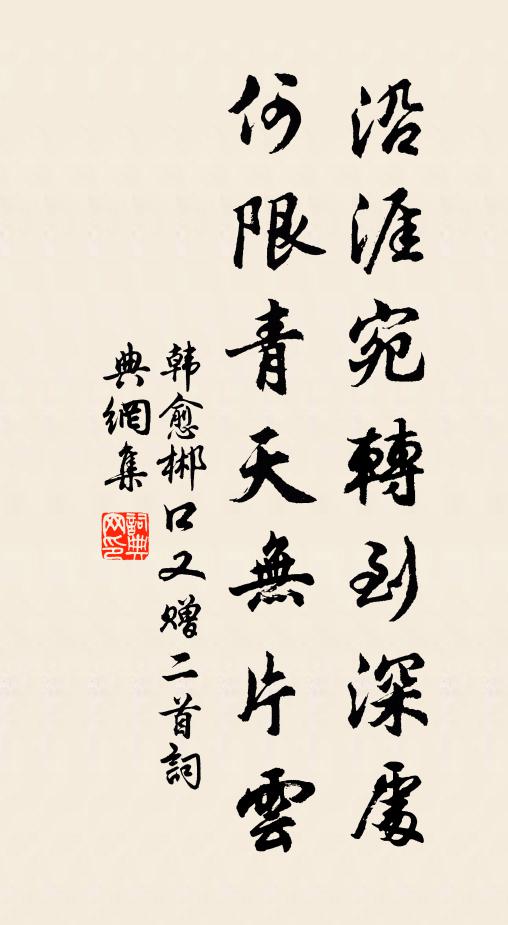 沿涯宛轉到深處
何限青天無片雲
韩愈郴口又赠二首詞
典網集
詞典
网印